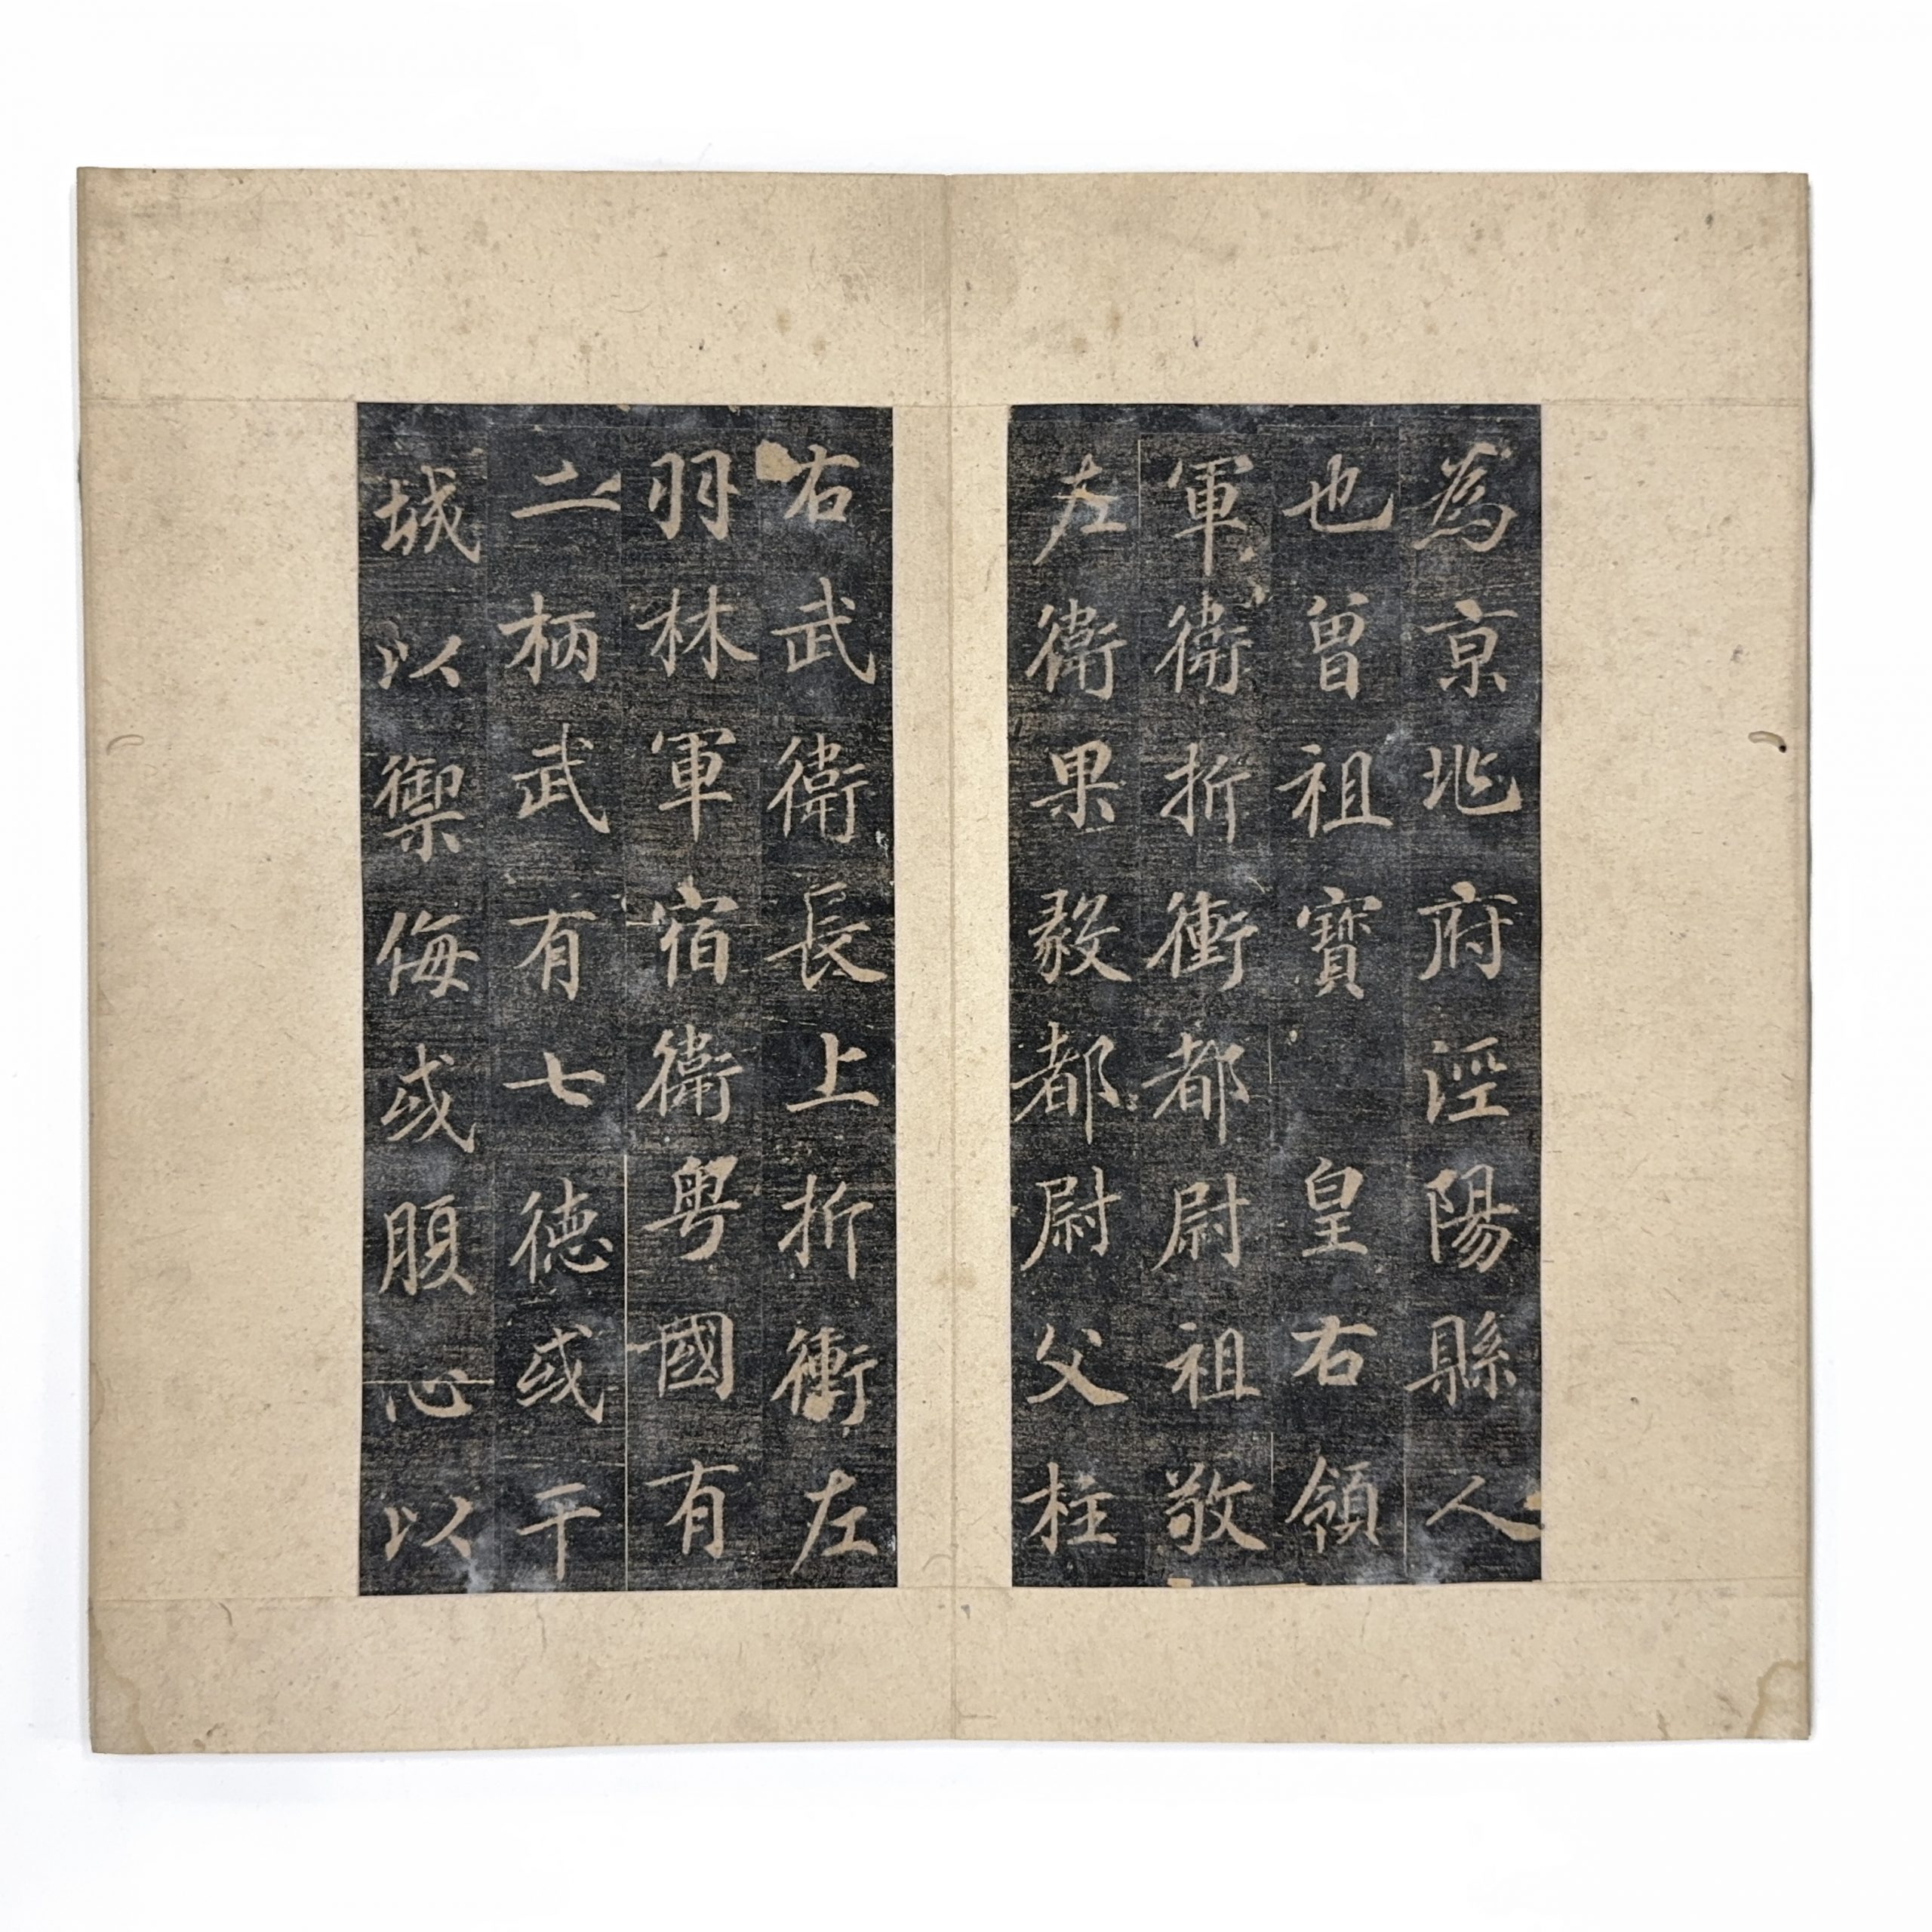 為京兆府涇陽縣人
也曾祖寶 皇右領
軍衛折衝都尉祖敬
左衛果毅都尉父柱
右武衛長上折衝左
羽林軍宿衛粤國有
二柄武有七德或干
城以禦侮或腹心以